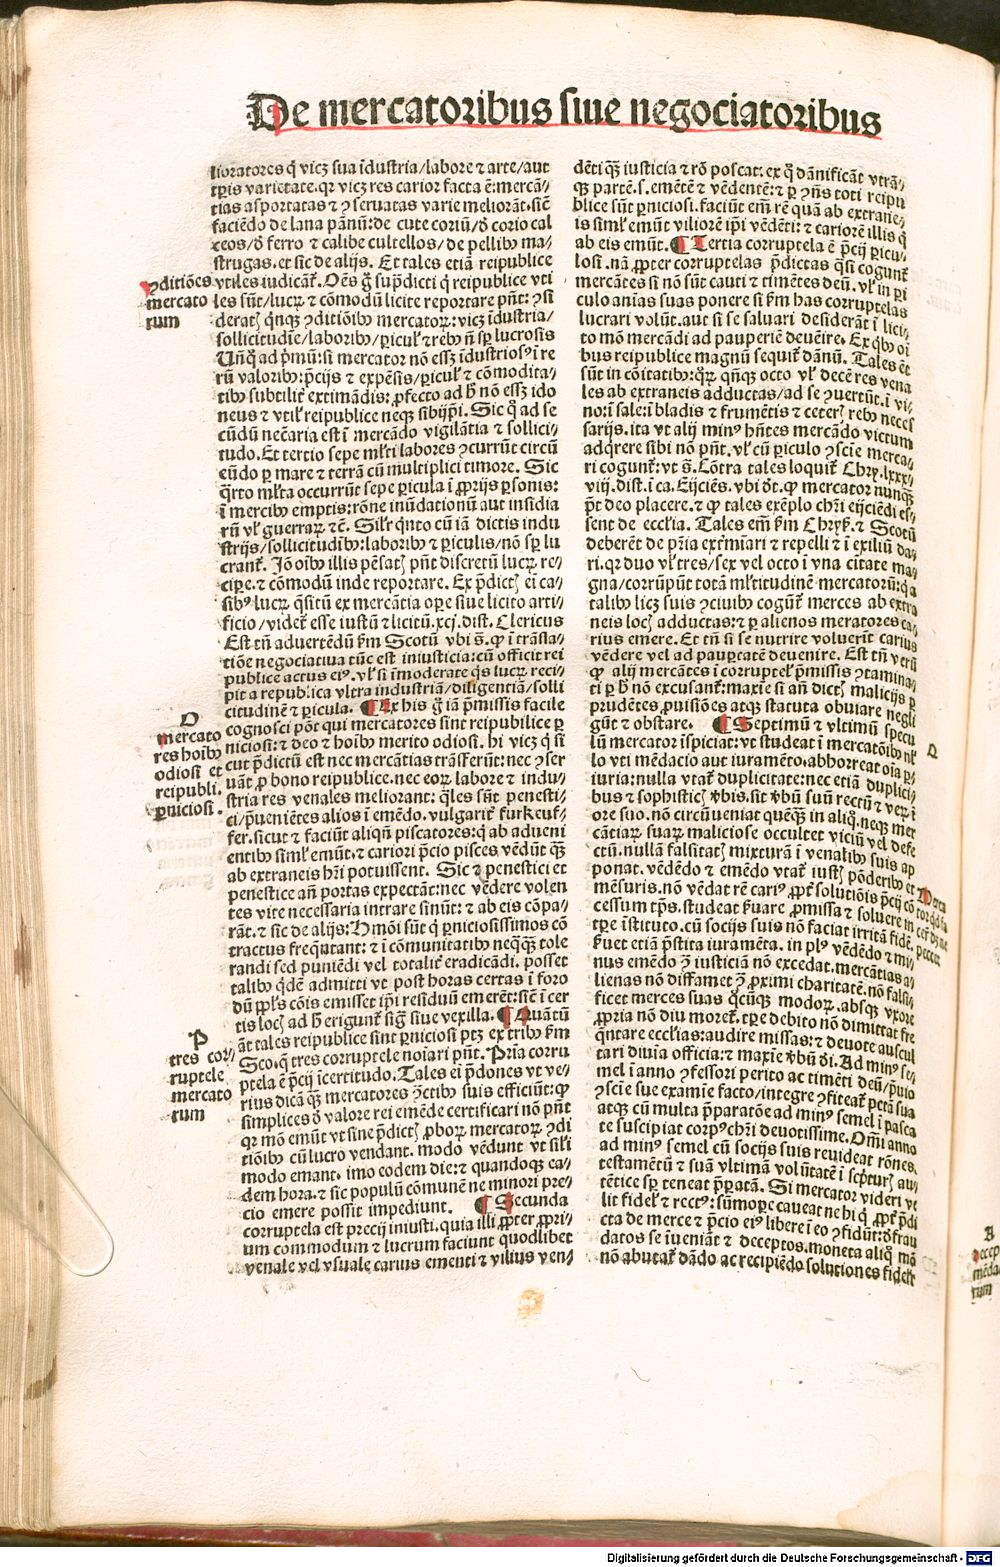 De mercatoribus siue negociatoribus
lioratores q̄ vicꝫ sua īdustria/labore ⁊ arte/aut
tꝑis varietate.qꝛ vicꝫ res carior facta ē:mercā/
tias asportatas ⁊ ꝯseruatas varie meliorāt.sic̄
faciēdo de lana pānū:de cute coriū/ð corio cal
ceos/ð ferro ⁊ calibe cultellos/de pellibꝰ ma/
strugas.et sic de alijs. Et tales etiā reipublice
vtiles iudicant̄. Oēs g̃ sup̄dicti q̄ reipublice vti
les sūt/lucꝝ ⁊ cōmodū licite reportare pn̄t: ꝯsi
ꝯditiōes
mercato
rum
sollicitudīe/laboribꝰ/ꝑicul̕ ⁊ rebꝰ n̄ sꝑ lucrosis
Un̄q̄ ad p̄mū:si mercator nō essꝫ īdustriosꝰ ī re
rū valoribꝰ:p̄cijs ⁊ expēsis/ꝑicul̕ ⁊ cōmodita/
tibꝰ subtilit̄ extimādis:ꝓfecto ad h̄ nō essꝫ ido
neus ⁊ vtil̕ reipublice neqꝫ sibijp̄i. Sic q̄ ad se
cūdū nec̄aria est ī mercādo vigilātia ⁊ sollici/
tudo. Et tertio sepe ml̕ti labores ꝯcurrūt circū
eūdo ꝑ mare ⁊ terrā cū multiplici timore. Sic
q̄rto ml̕ta occurrūt sepe ꝑicula ī ꝓprijs ꝑsonis:
ī mercibꝰ emptis:rōne inūdationū aut insidia
rū vl̕ guerraꝝ ⁊c̄. Sil̕r q̄nto cū iā dictis indu
strijs/sollicitudībꝰ:laboribꝰ ⁊ ꝑiculis/nō sꝑ lu
crant̄. Jō oībꝰ illis pēsatꝭ pn̄t discretū lucꝝ re/
cipe.⁊ cōmodū inde reportare. Ex p̄dictꝭ ei ca/
sibꝰ lucꝝ q̄sitū ex mercātia oꝑe siue licito arti/
ficio/videt̄ esse iustū ⁊ licitū.xcj.dist. Clericus
Est tn̄ aduertēdū ẜm Scotū vbi s̄.ꝙ ī trāsla/
tiōe negociatiua tūc est iniusticia:cū officit rei
publice actus eiꝰ.vl̕ si īmoderate q̄s lucꝝ reci/
pit a republica vltra industriā/diligentiā/solli
citudinē ⁊ ꝑicula. ¶ Ex his g̃ iā p̄missis facile
cognosci pōt qui mercatores sint reipubilice ꝑ
niciosi:⁊ deo ⁊ hoībꝰ merito odiosi. hi vicꝫ q̄ si
cut p̄dictū est nec mercātias trāsferūt:nec ꝯser
uāt ꝓ bono reipublice.nec eoꝝ labore ⁊ indu/
stria res venales meliorant:q̄les sūt penesti/
O
mercato
res hoībꝰ
odiosi et
reipubli.
ꝑniciosi.
ci/p̄ueniētes alios ī emēdo.vulgarit̄ furkeuf/
fer.sicut ⁊ faciūt aliqn̄ piscatores:q̄ ab adueni
entibꝰ siml̕ emūt.⁊ cariori p̄cio pisces vēdūt qꝫ
ab extraneis hr̄i potuissent. Sic ⁊ penestici et
penestice an̄ portas expectāt:nec vēdere volen
tes vite necessaria intrare sinūt:⁊ ab eis cōpa/
rāt.⁊ sic de alijs:Hmōi sūt q̄ ꝑniciosissimos cō
tractus freq̄ntant:⁊ ī cōmunitatibꝰ neq̄qꝫ tole
randi sed puniēdi vel totalit̄ eradicādi. posset
talibꝰ q̄dē admitti vt post horas certas ī foro
dū ppl̕s cōis emisset ip̄i residuū emerēt:sic̄ ī cer
tis locꝭ ad h̄ erigunt̄ sig̃ siue vexilla. ¶ Quātū
āt tales reipublice sint ꝑniciosi ptꝫ ex tribꝰ ẜm
Sco.q̄ tres corruptele noīari pn̄t. Pria corru
P
tres cor/
ruptele
mercato
rum
ptela ē p̄cij īcertitudo. Tales ei p̄dones vt ve/
rius dicā qꝫ mercatores ꝯctibꝰ suis efficiūt:ꝙ
simplices ð valore rei emēde certificari nō pn̄t
qꝛ mō emūt vt sine p̄dictꝭ ꝓboꝝ mercatoꝝ ꝯdi
tiōibꝰ cū lucro vendant. modo vēdunt vt sil̕i
modo emant. imo eodem die:⁊ quandoqꝫ ea/
dem hora.⁊ sic populū cōmunē ne minori pre/
cio emere possit impediunt. ¶ Secunda
corruptela est precij iniusti.quia illi ꝓpter ꝓpri/
um commodum ⁊ lucrum faciunt quodlibet
venale vel vsuale carius ementi ⁊ vilius ven/
dēti qꝫ iusticia ⁊ rō poscat:ex q̄ dānificāt vtrā/
qꝫ partē.s.emētē ⁊ vēdentē:⁊ ꝑ ꝯn̄s toti reipu
blice sūt ꝑniciosi.faciūt em̄ rē quā ab extrane/
is siml̕ emūt viliorē ip̄i vēdēti:⁊ cariorē illis q̄
ab eis emūt. ¶ Tertia corruptela ē p̄cij ꝑicu/
losi.nā ꝓpter corruptelas p̄dictas q̄si cogunt̄
mercātes si nō sūt cauti ⁊ timētes deū.vl̕ in ꝑi
culo aīas suas ponere si ẜm has corruptelas
lucrari volūt.aut si se saluari desiderāt ī lici/
to mō mercādi ad pauperiē deuēire. Ex q̄bꝰ oī
bus reipublice magnū sequit̄ dānū. Tales ēt
sūt in cōitatibꝰ:q̄ꝝ qn̄qꝫ octo vl̕ decē res vena
les ab extraneis adductas/ad se ꝯuertūt.ī vi/
no:ī sale:ī bladis ⁊ frumētis ⁊ ceterꝭ rebꝰ neces
sarijs.ita vt alij minꝰ hn̄tes mercādo victum
adq̄rere sibi nō pn̄t.vl̕ cū ꝑiculo ꝯscie merca/
ri cogunt̄:vt s̄. Cōtra tales loquit̄ Chry.lxxx/
viij.dist.ī ca. Eijciēs.vbi ðt.ꝙ mercator nunqꝫ
pt̄ deo placere.⁊ ꝙ tales exēplo chr̄i eijciēdi es/
sent de eccl̕ia. Tales em̄ ẜm Chryẜ.⁊ Scotū
deberēt de pr̄ia ext̄mīari ⁊ repelli ⁊ ī exiliū da/
ri.qꝛ duo vl̕ tres/sex vel octo ī vna citate ma/
gna/corrūpūt totā ml̕titudinē mercatorū:q̄a
talibꝰ licꝫ suis ꝯciuibꝰ cogūt̄ merces ab extra
neis locꝭ adductas:⁊ ꝑ alienos meratores ca/
rius emere. Et tn̄ si se nutrire voluerit̄ carius
vēdere vel ad pauꝑtatē deuenire. Est tn̄ verū
ꝙ alij mercātes ī corruptel̕ p̄missis ꝯtamina/
ti ꝑ h̄ nō excusant̄:maxīe si an̄ dictꝭ malicijs ꝑ
prudētes ꝓuisiōes atqꝫ statuta obuiare negli
gūt ⁊ obstare. ¶ Septimū ⁊ vltimū specu
Q
lū mercator īspiciat:vt studeat ī mercatōibꝰ nl̕
lo vti mēdacio aut iuramēto.abhorreat oīa ꝑ/
iuria:nulla vtat̄ duplicitate:nec etiā duplici/
bus ⁊ sophisticꝭ v̄bis.sit v̄bū suū rectū ⁊ verꝫ ī
ore suo.nō circūueniat quēqꝫ in aliq̄.neqꝫ mer
cātiaꝝ suaꝝ maliciose occultet viciū vel defe
ctū.nullā falsitatꝭ mixturā ī venalibꝰ suis ap
ponat.vēdēdo ⁊ emēdo vtat̄ iustꝭ pōderibꝰ et
mēsuris.nō vēdat rē cariꝰ ꝓpt̄ solutiōis p̄cij cō
cessum tp̄s.studeat ẜuare ꝓmissa ⁊ soluere in
tꝑe īstituto.cū socijs suis nō faciat irritā fidē.
ẜuet etiā p̄stita iuramēta. in plꝰ vēdēdo ⁊ mi/
nus emēdo ꝯ̄ iusticiā nō excedat.mercātias a/
lienas nō diffamet ꝯ̄ ꝓximi charitatē.nō falsi/
ficet merces suas q̄cūqꝫ modoꝝ.absqꝫ vxore
ꝓpria nō diu moret̄.tꝑe debito nō dimittat fre
q̄ntare eccl̕ias:audire missas:⁊ deuote auscul
tari diuina officia:⁊ maxīe v̄bū ði. Ad minꝰ se/
mel ī anno ꝯfessori perito ac timēti deū/p̄uio
ꝯscie sue examīe facto/integre ꝯfiteat̄ pctā sua
atqꝫ cū multa p̄paratōe ad minꝰ semel ī pasca
te suscipiat corpꝰ chr̄i deuotissime. Om̄i anno
ad minꝰ semel cū socijs suis reuideat rōnes.
testamētū ⁊ suā vltimā volūtatē ī sc̄pturꝭ au/
tētice sꝑ teneat p̄paratā. Si mercator videri vt
lit fidel̕ ⁊ rectꝰ:sūmopere caueat ne hi q̄ ꝓpt̄ p̄di
cta de merce ⁊ p̄cio eiꝰ libere ī eo ꝯfidūt:ðfrau
datos se īueniāt ⁊ deceptos.moneta aliq̄ mō
nō abutat̄ dādo ac recipiēdo solutiones fidel̕r
Digitalisierung gefördert durch die Deutsche Forschungsgemeinschaft - DFG